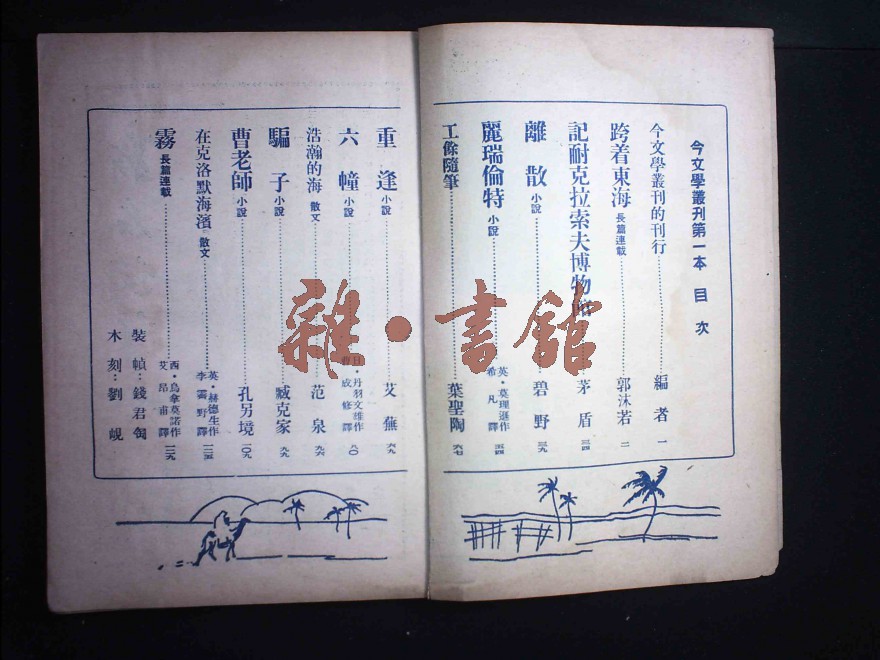 今文學叢刊第一本 目次
今文學叢刊的刊行 編者 一
跨着東海 長篇連載 郭沫若 二
記耐克拉索夫博物館 茅盾 三四
離散 小說 碧野 三九
麗瑞倫特 小說 英・莫理遜作 希凡譯 五四
工餘隨筆 葉聖陶 六七
重逢 小說 艾蕪 六九
六幢 小說 日・丹羽文雄作 成修譯 八〇
浩瀚的海 散文 范泉 九六
騙子 小說 臧克家 九九
曹老師 小說 孔另境 一〇九
在克洛默海濱 散文 英・赫德生作 李雲野譯 一二五
霧 長篇連載 西・烏拿莫諾作 艾昂甫譯 一二九
裝幀：錢君匋
木刻：劉峴
雜・書館